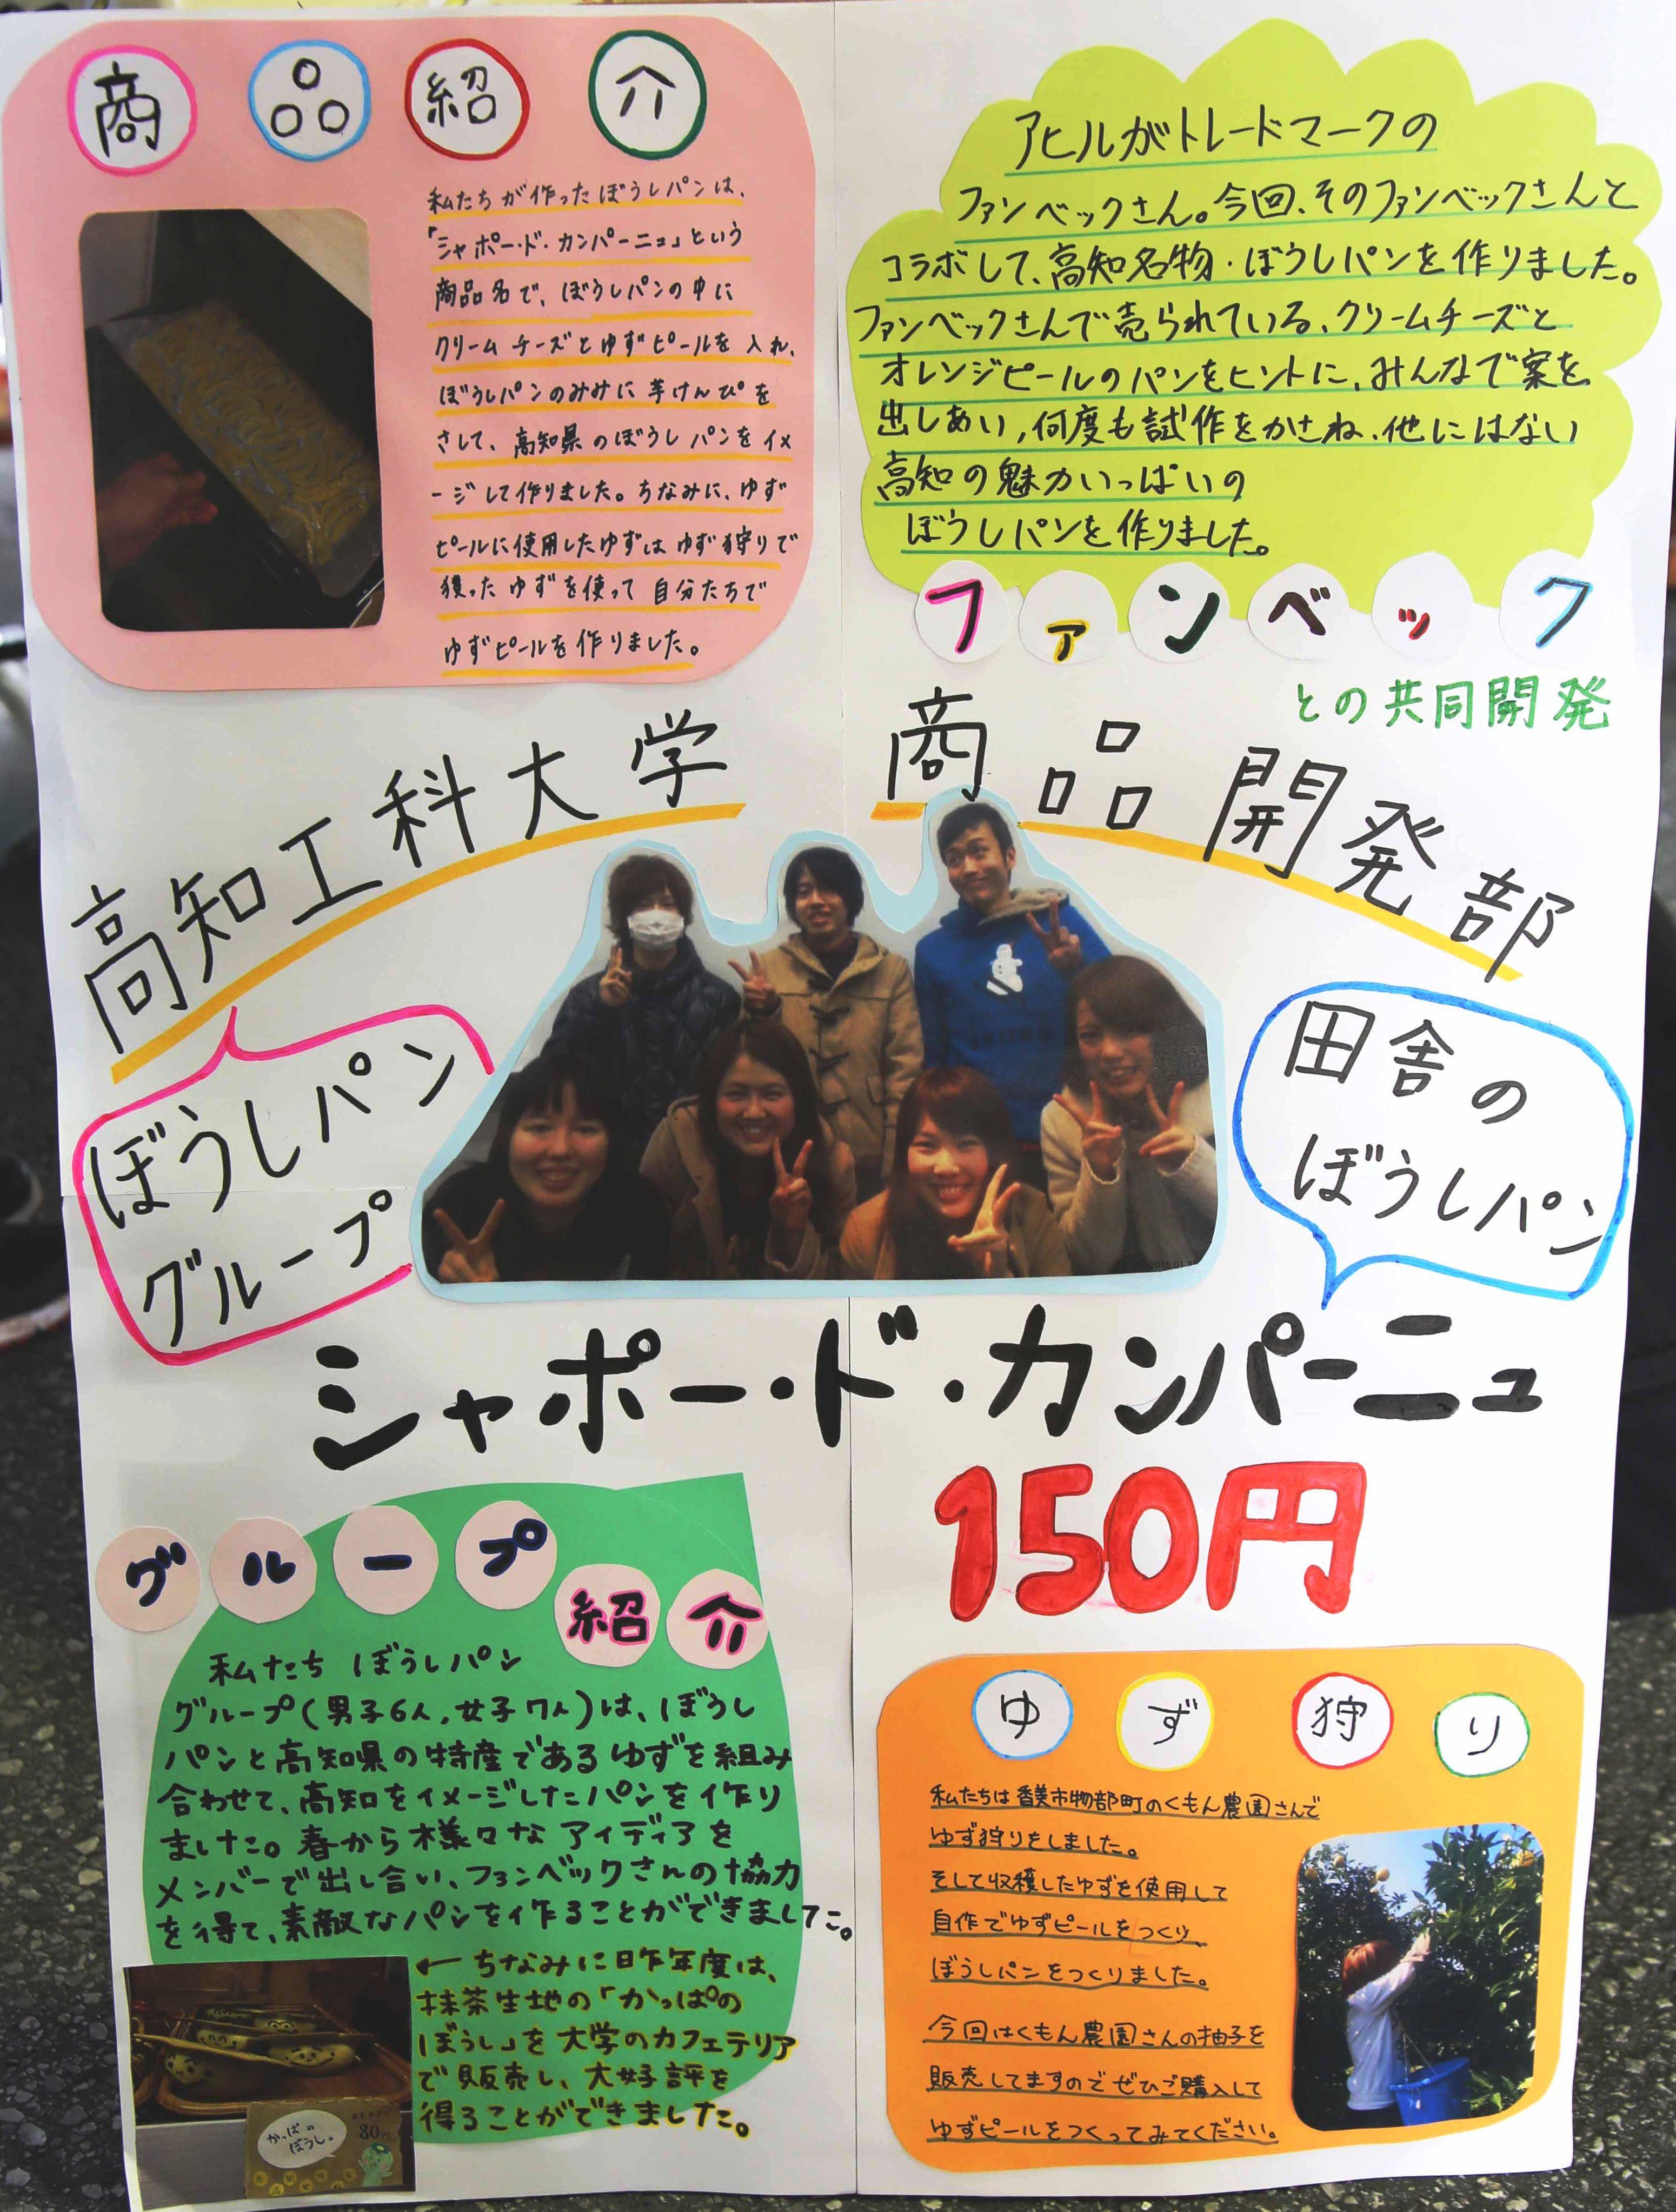 商品紹介
私たちが作ったぼうしパンは、
「シャポー・ド・カンパーニュ」という
商品名で、ぼうしパンの中に
クリームチーズとゆずピールを入れ、
ぼうしパンのみみに芋けんぴを
さして、高知県のぼうしパンをイメ
ージして作りました。ちなみに、ゆず
ピールに使用したゆずはゆず狩りで
獲ったゆずを使って自分たちで
ゆずピールを作りました。
アヒルがトレードマークの
ファンベックさん。今回、そのファンベックさんと
コラボして、高知名物・ぼうしパンを作りました。
ファンベックさんで売られている、クリームチーズと
オレンジピールのパンをヒントに、みんなで案を
出しあい,何度も試作をかさね、他にはない
高知の魅力いっぱいの
ぼうしパンを作りました。
ファンベック
との共同開発
高知工科大学 商品開発部
ぼうしパン
グループ
田舎の
ぼうしパン
シャポー・ド・カンパーニュ
150円
グループ紹介
私たち ぼうしパン
グループ(男子6人,女子7人)は、ぼうし
パンと高知県の特産であるゆずを組み
合わせて、高知をイメージしたパンを作り
ました。春から様々なアイディアを
メンバーで出し合い、ファンベックさんの協力
を得て、素敵なパンを作ることができました。
←ちなみに昨年度は、
抹茶生地の「かっぱの
ぼうし」を大学のカフェテリア
で販売し、大好評を
得ることができました。
かっぱの
ぼうし。
80円
ゆず狩り
私たちは香美市物部町のくもん農園さんで
ゆず狩りをしました。
そして収穫したゆずを使用して
自作でゆずピールをつくり、
ぼうしパンをつくりました。
今回はくもん農園さんの柚子を
販売してますのでぜひご購入して
ゆずピールをつくってみてください。